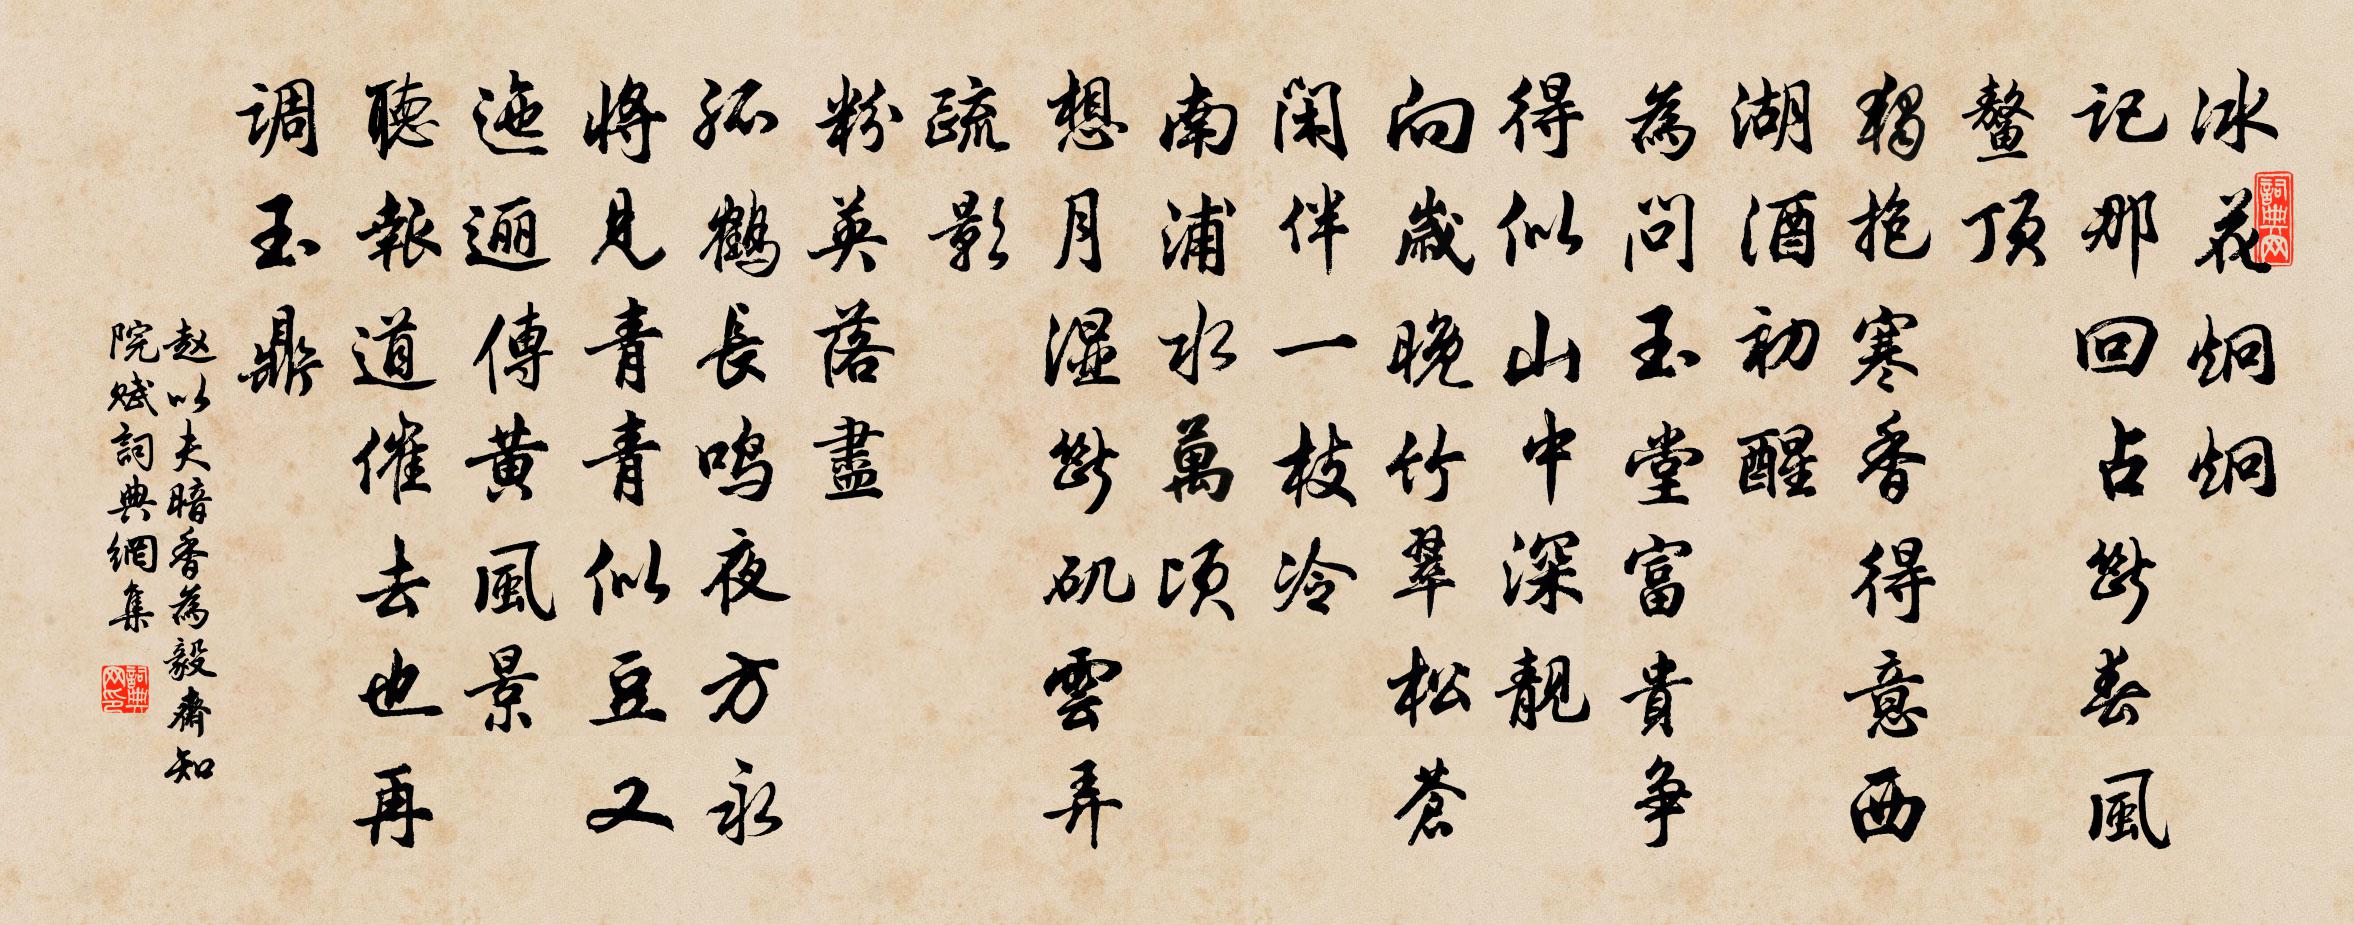 冰花炯炯
記那回占斷春風
鰲頂
獨抱寒香得意西
湖酒初醒
為問玉堂富貴争
得似山中深靚
向歲晚竹翠松蒼
閑伴一枝冷
南浦水萬頃
想月濕斷矶雲弄
疏影
粉英落盡
孤鶴長鳴夜方永
將見青青似豆又
迤逦傳黃風景
聽報道催去也再
调玉鼎
赵以夫暗香為毅齋知
院赋詞典網集
詞典网
詞典网印